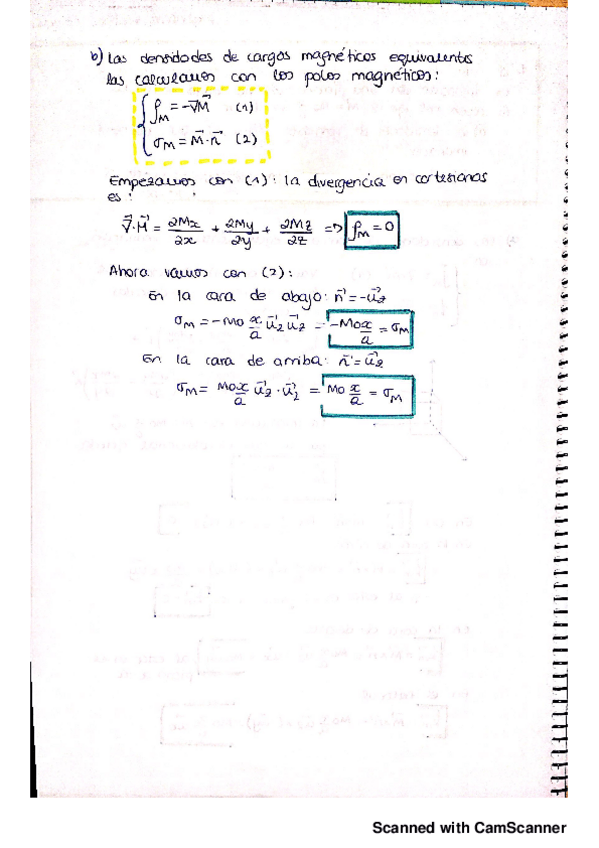 b) Las densidades de cargas magnéticas equivalentes
las calculamos con los polos magnéticos:
ρ_M = -∇M⃗ (1)
σ_M = M⃗·n⃗ (2)
Empezamos con (1): la divergencia en cartesianas
es:
∇⃗·M⃗ = ∂Mx/∂x + ∂My/∂y + ∂Mz/∂z => ρ_M = 0
Ahora vamos con (2):
En la cara de abajo: n⃗ = -u⃗z
σ_M = -Mo x/a u⃗z u⃗z = -Mo x/a = σ_M
En la cara de arriba: n⃗ = u⃗z
σ_M = Mo x/a u⃗z · u⃗z = Mo x/a = σ_M
Scanned with CamScanner